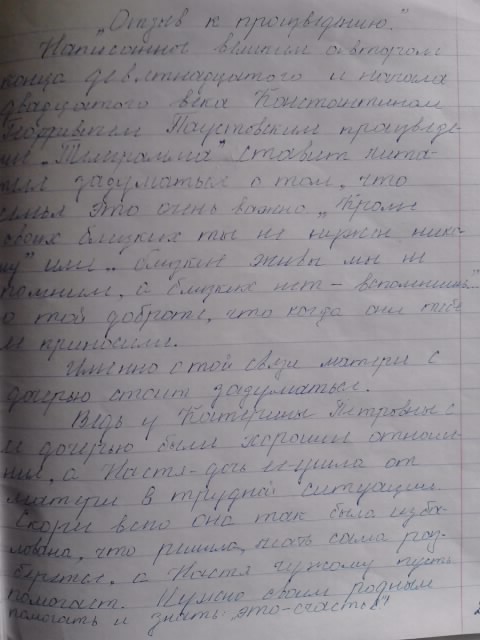 „Отзыв к произведению."
Написанное великим автором
конца девятнадцатого и начала
двадцатого века Константином
Георгиевичем Паустовским произведе-
ние „Телеграмма" ставит чита-
теля задуматься о том, что
семья это очень важно „Кроме
своих близких ты не нужен нико-
му" или „близкие живы мы не
помним, а близких нет - вспоминаешь"
о той доброте, что когда они тебе
её приносили.
Именно о той связи матери с
дочерью стоит задуматься.
Ведь у Катерины Петровны с
её дочерью были хорошии отноше-
ния, а Настя-дочь её-ушла от
матери в трудной ситуации.
Скорей всего она так была изба-
лована, что решила, мать сама раз-
берется, а Настя чужому пусть
помогает. Нужно своим родным
помогать и знать: это-счастье!